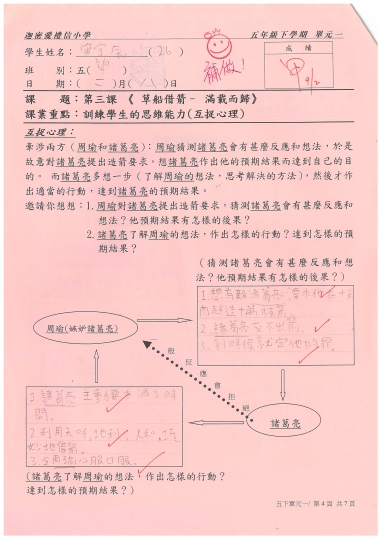 迦密愛禮信小學
五年級下學期 單元一
學生姓名： ( 26 )
成績
補做！
班 別：五( 望 )
4/2
日 期：( 二 )月( )日
課 題：第三課 《 草船借箭－ 滿載而歸》
課業重點：訓練學生的思維能力(互捉心理)
互捉心理：
牽涉兩方（周瑜和諸葛亮）：周瑜猜測諸葛亮會有甚麼反應和想法，於是
故意對諸葛亮提出造箭要求，想諸葛亮作出他的預期結果而達到自己的目
的。 而諸葛亮多想一步（了解周瑜的想法，思考解決的方法)，然後才作
出適當的行動，達到諸葛亮的預期結果。
邀請你想想：1. 周瑜對諸葛亮提出造箭要求，猜測諸葛亮會有甚麼反應和
想法？他預期結果有怎樣的後果？
2. 諸葛亮了解周瑜的想法，作出怎樣的行動？達到怎樣的預期
結果？
（猜測諸葛亮會有甚麼反應和想
法？他預期結果有怎樣的後果？）
1.想為難諸葛亮，要求他在十天
內起造十萬枝箭。
2.諸葛亮交不出箭。
周瑜(嫉妒諸葛亮)
一般反應會拒絕
諸葛亮
1.諸葛亮
間。
2.利用天時、地利、人和，巧
妙地借箭。
3.令周瑜心服口服。
(諸葛亮了解周瑜的想法，作出怎樣的行動？
達到怎樣的預期結果？)
五下單元一/ 第 4 頁 共 7 頁